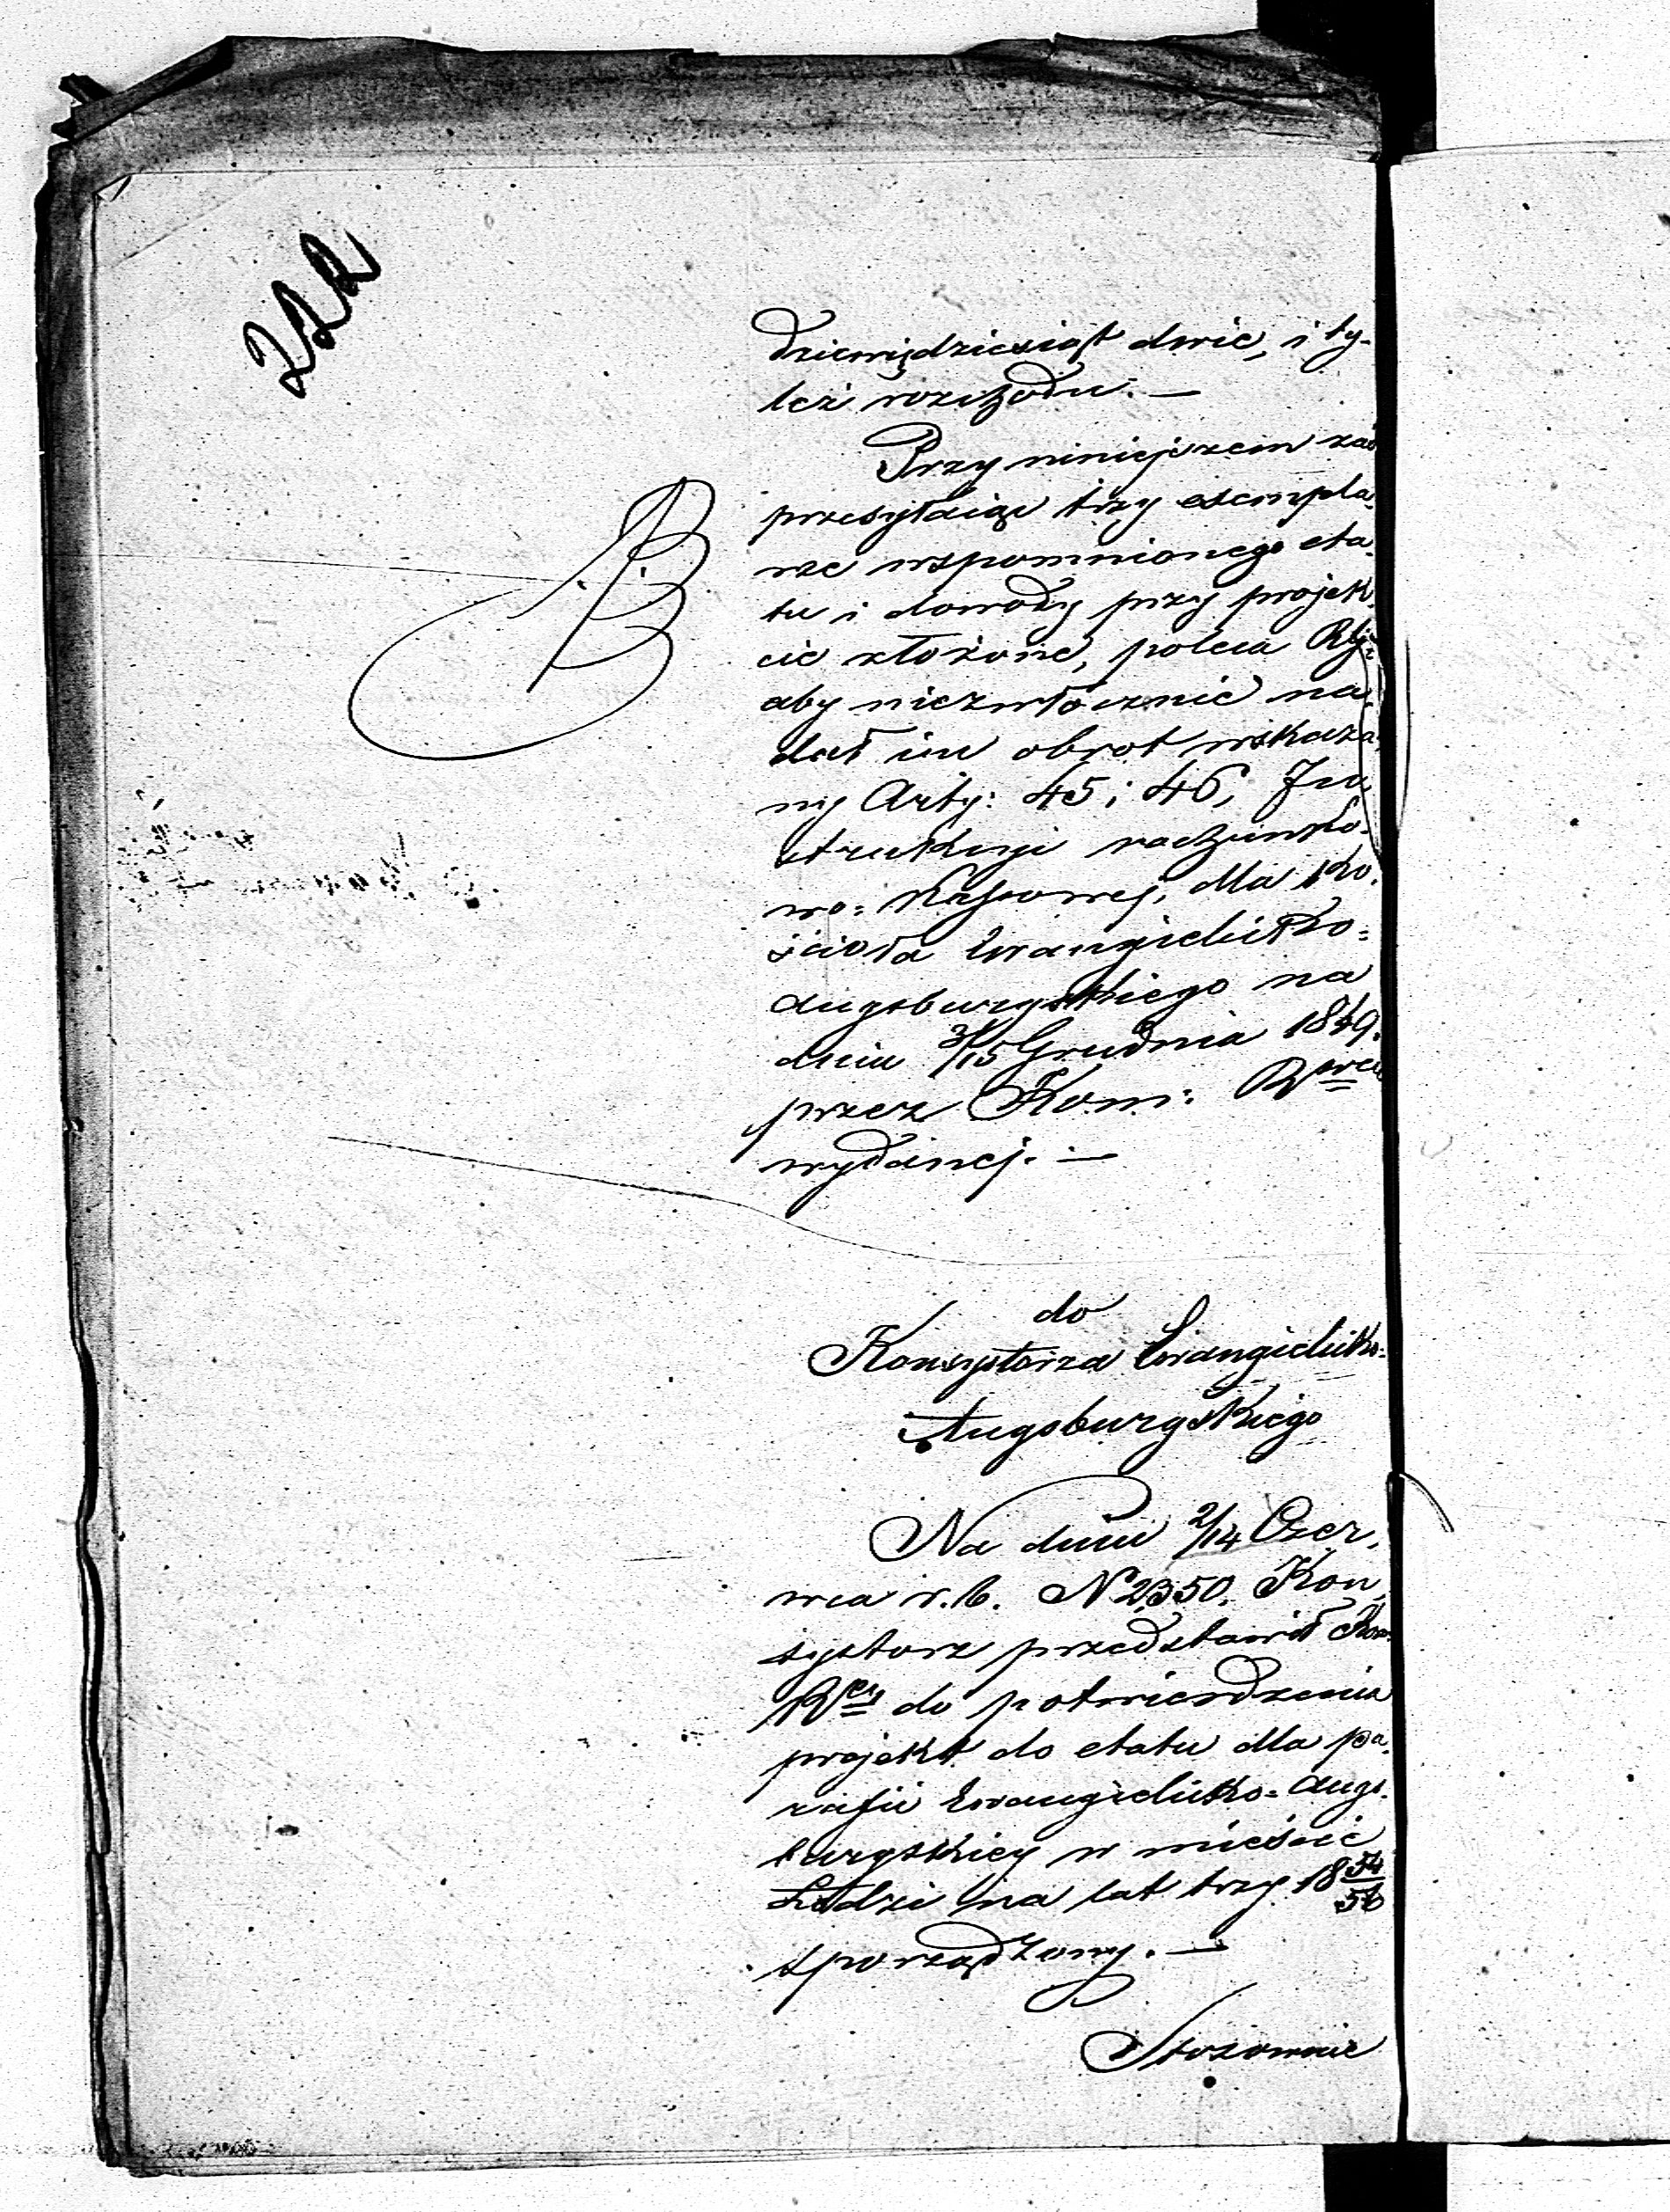 222
dziewiędziesiąt dwie, i ty-
leż rozchodu. —
Przy niniejszem zaś
przesyłaiąc trzy exempla-
rze wspomnionego eta-
tu i dowody przy projek-
cie złożone, poleca
aby niezwłocznie na-
dał im obrot wskaza-
ny Arty: 45 i 46, In-
strukcyi rachunko-
wo-Kassowej, dla Ko-
ścioła Ewangielicko-
Augsburgskiego na
dniu 3/15 Grudnia 1849.
przez Kom: Rową
wydanej. —
do
Konsystorza Ewangielicko-
Augsburgskiego
Na dniu 2/14 Czer-
wca r. b. N 2350. Kon-
systorz przedstawił Kom:
Rej do potwierdzenia
projekt do etatu dla pa-
rafii Ewangielicko-Augs-
burgskiey w mieście
Łodzi na lat trzy 1854/56
sporządzony. —
Stosownie